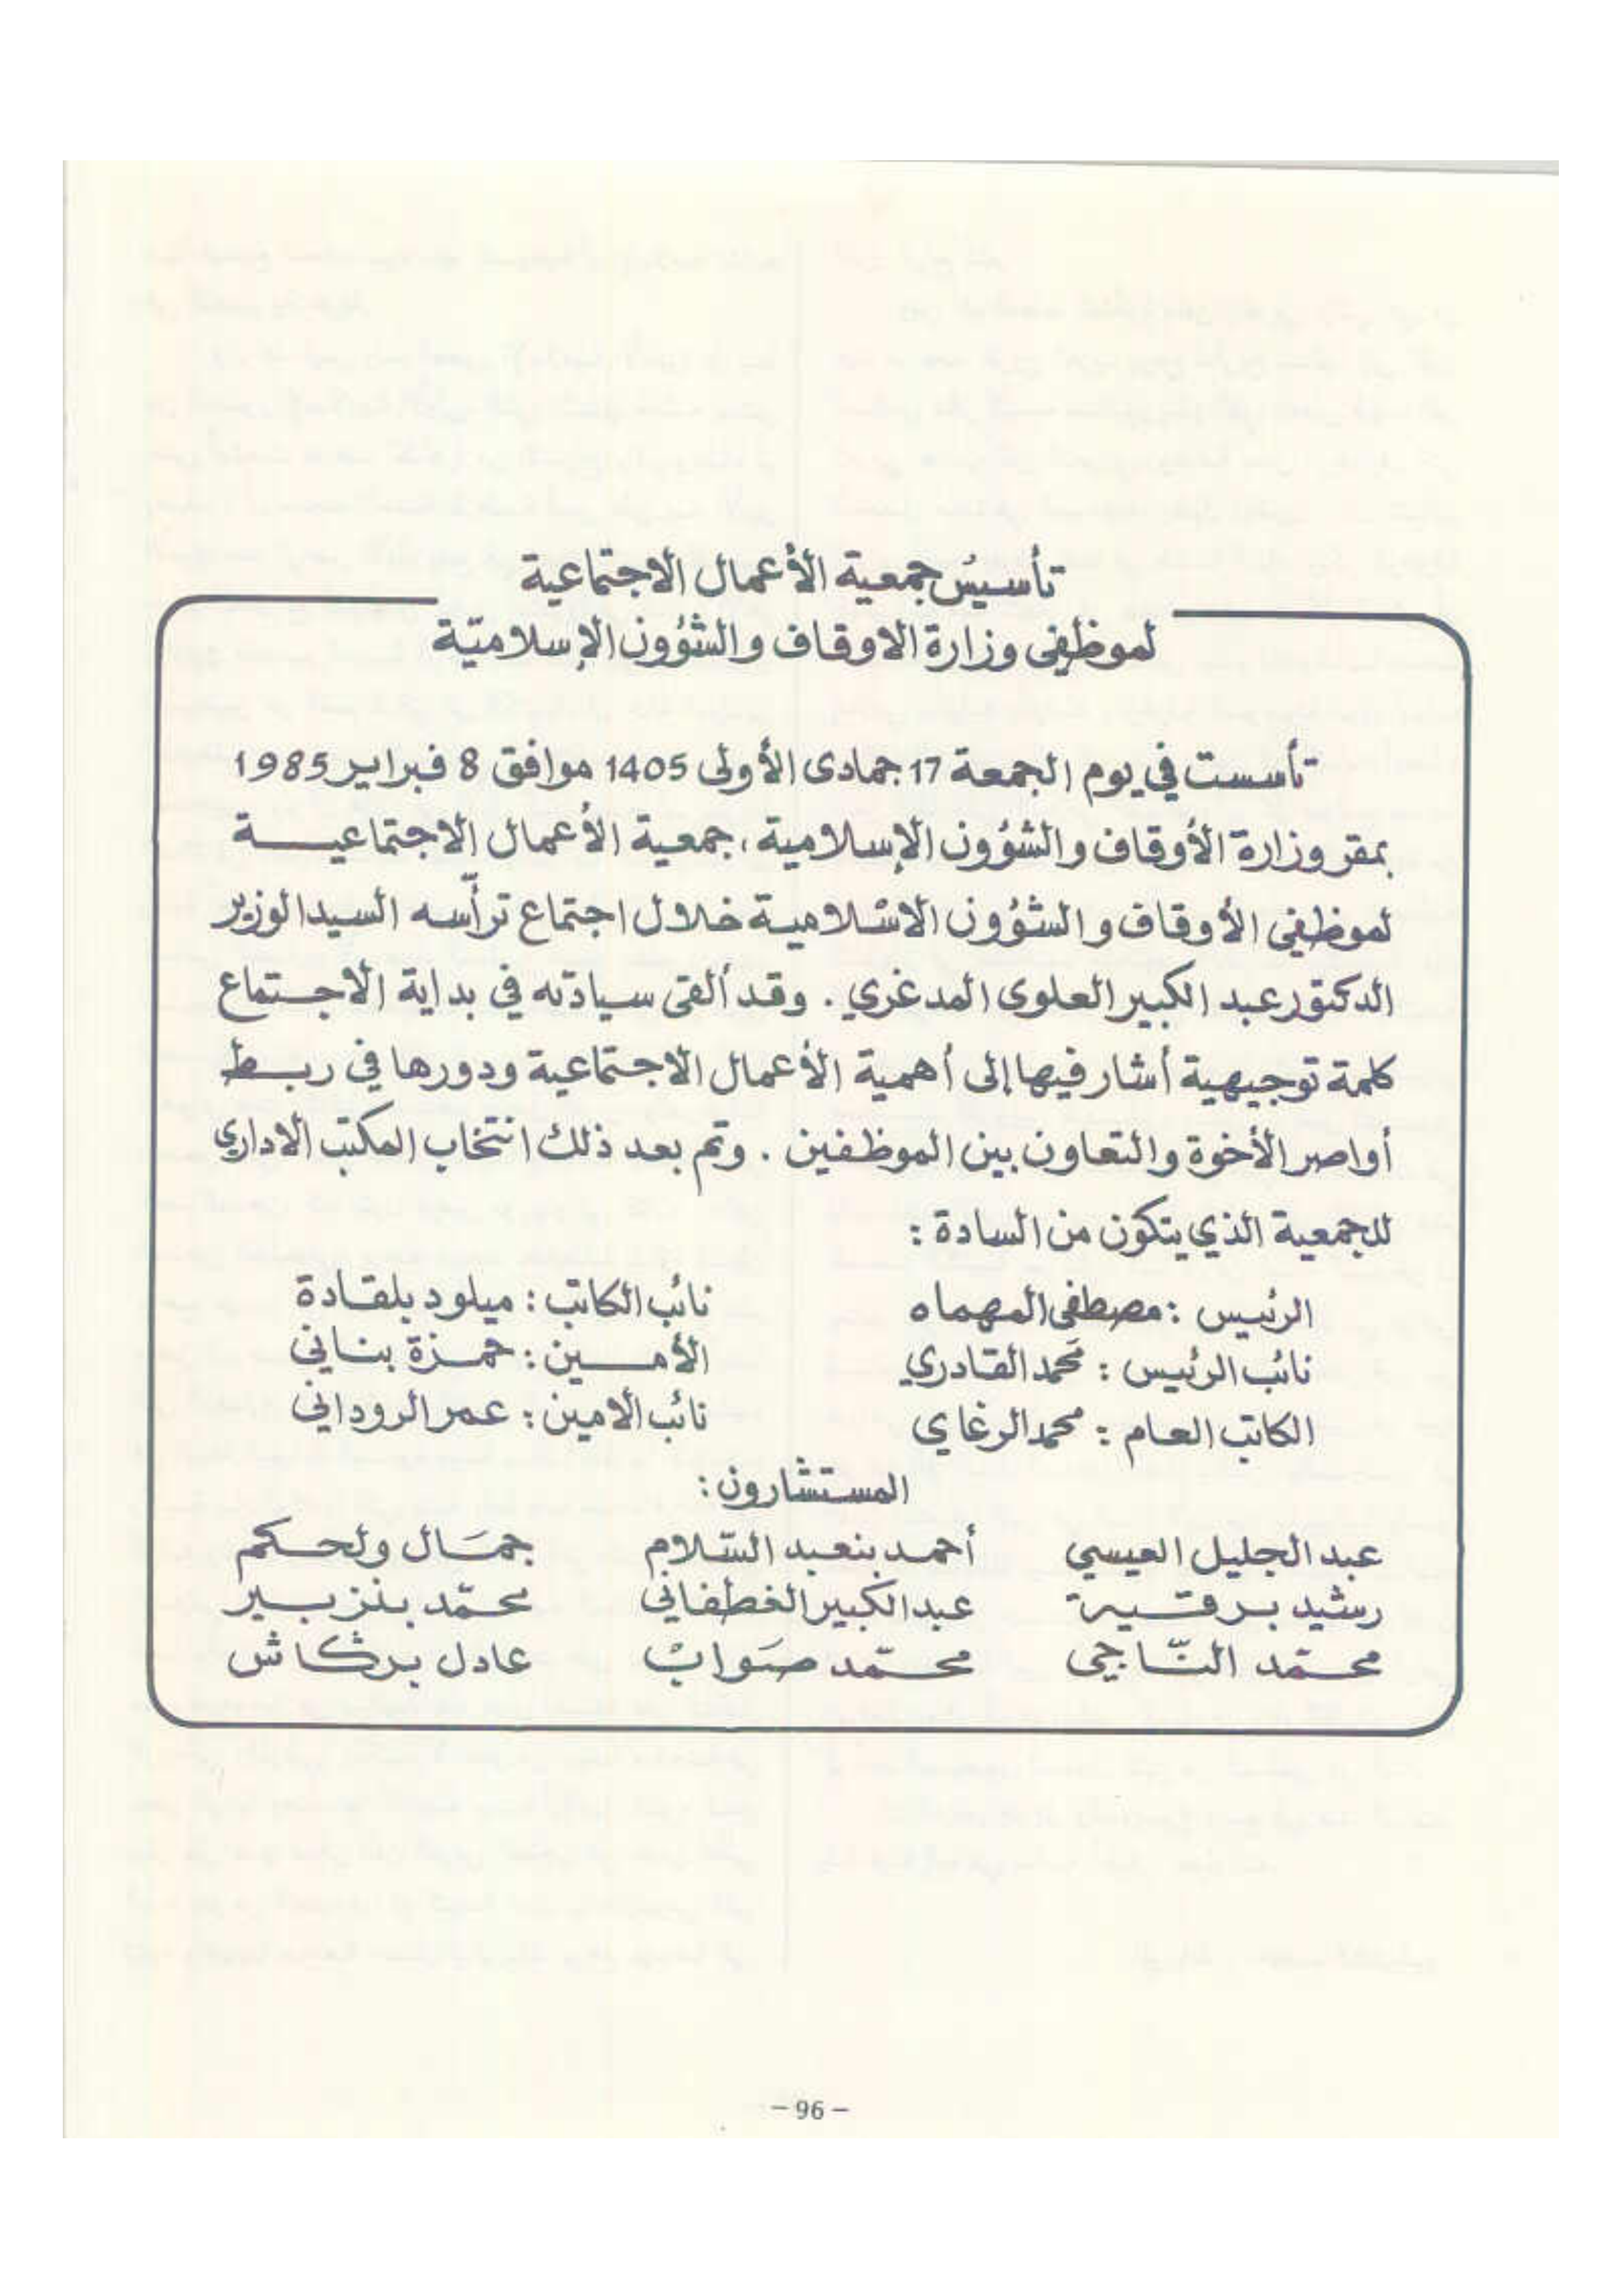 تأسيس جمعية الأعمال الاجتماعية
لموظفي وزارة الاوقاف والشؤون الإسلاميّة
تأسست في يوم الجمعة 17 جمادى الأولى 1405 موافق 8 فبراير 1985
بمقر وزارة الأوقاف والشؤون الإسلامية، جمعية الأعمال الاجتماعيـــة
لموظفي الأوقاف والشؤون الاسلامية خلال اجتماع ترأسه السيد الوزير
الدكتور عبد الكبير العلوي المدغري . وقد ألقى سيادته في بداية الاجتماع
كلمة توجيهية أشار فيها إلى أهمية الأعمال الاجتماعية ودورها في ربـط
أواصر الأخوة والتعاون بين الموظفين . وتم بعد ذلك انتخاب المكتب الاداري
للجمعية الذي يتكون من السادة :
الرئيس : مصطفى المهماه
نائب الرئيس : محمد القادري
الكاتب العام : محمد الرغاي
نائب الكاتب : ميلود بلقادة
الأمــين : حمزة بناني
نائب الامين : عمر الروداني
المستشارون :
عبد الجليل العيسي أحمد بنعبد السّلام جمَال ولحكم
رشيد برقية عبد الكبير الغطفاني محمّد بنزبير
محمّد النّاجي محمّد صَوابْ عادل بركاش
- 96 -